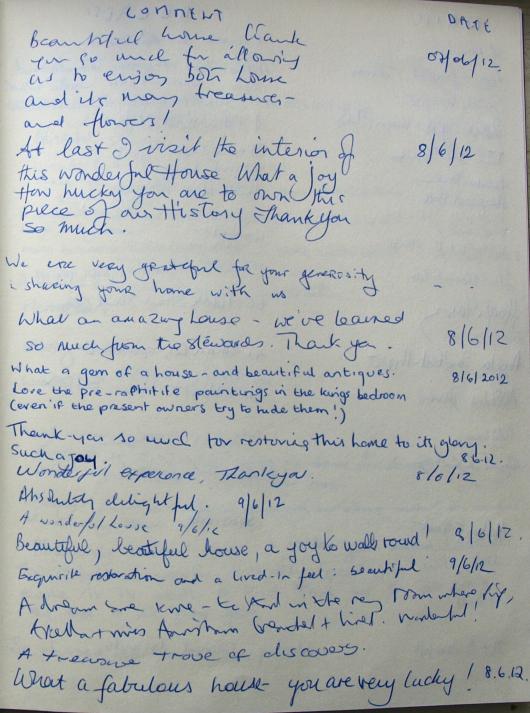 COMMENT DATE
Beautiful home thank
you so much for allowing 07/06/12.
us to enjoy both house
and its many treasures -
and flowers!
At last I visit the interior of 8/6/12
this wonderful House What a joy
How lucky you are to own this
piece of our History Thank you
so much.
We are very grateful for your generosity
sharing your home with us
What an amazing house - we've learned
so much from the stewards. Thank you. 8/6/12
What a gem of a house - and beautiful antiques. 8/6/2012
Love the Pre-raphitite paintings in the kings bedroom
(even if the present owners try to hide them!)
Thank-you so much for restoring this home to its glory.
Such a joy 8.6.12.
Wonderful experience, Thankyou. 8/6/12
Absolutely delightful. 9/6/12
A wonderful house 9/6/12
Beautiful, beautiful house, a joy to walk round! 9/6/12.
Exquisite restoration and a lived-in feel: beautiful 9/6/12
A dream come true - to stand in the very room where
+ lived. Wonderful!
A treasure trove of discovery.
What a fabulous house - you are very lucky! 8.6.12.